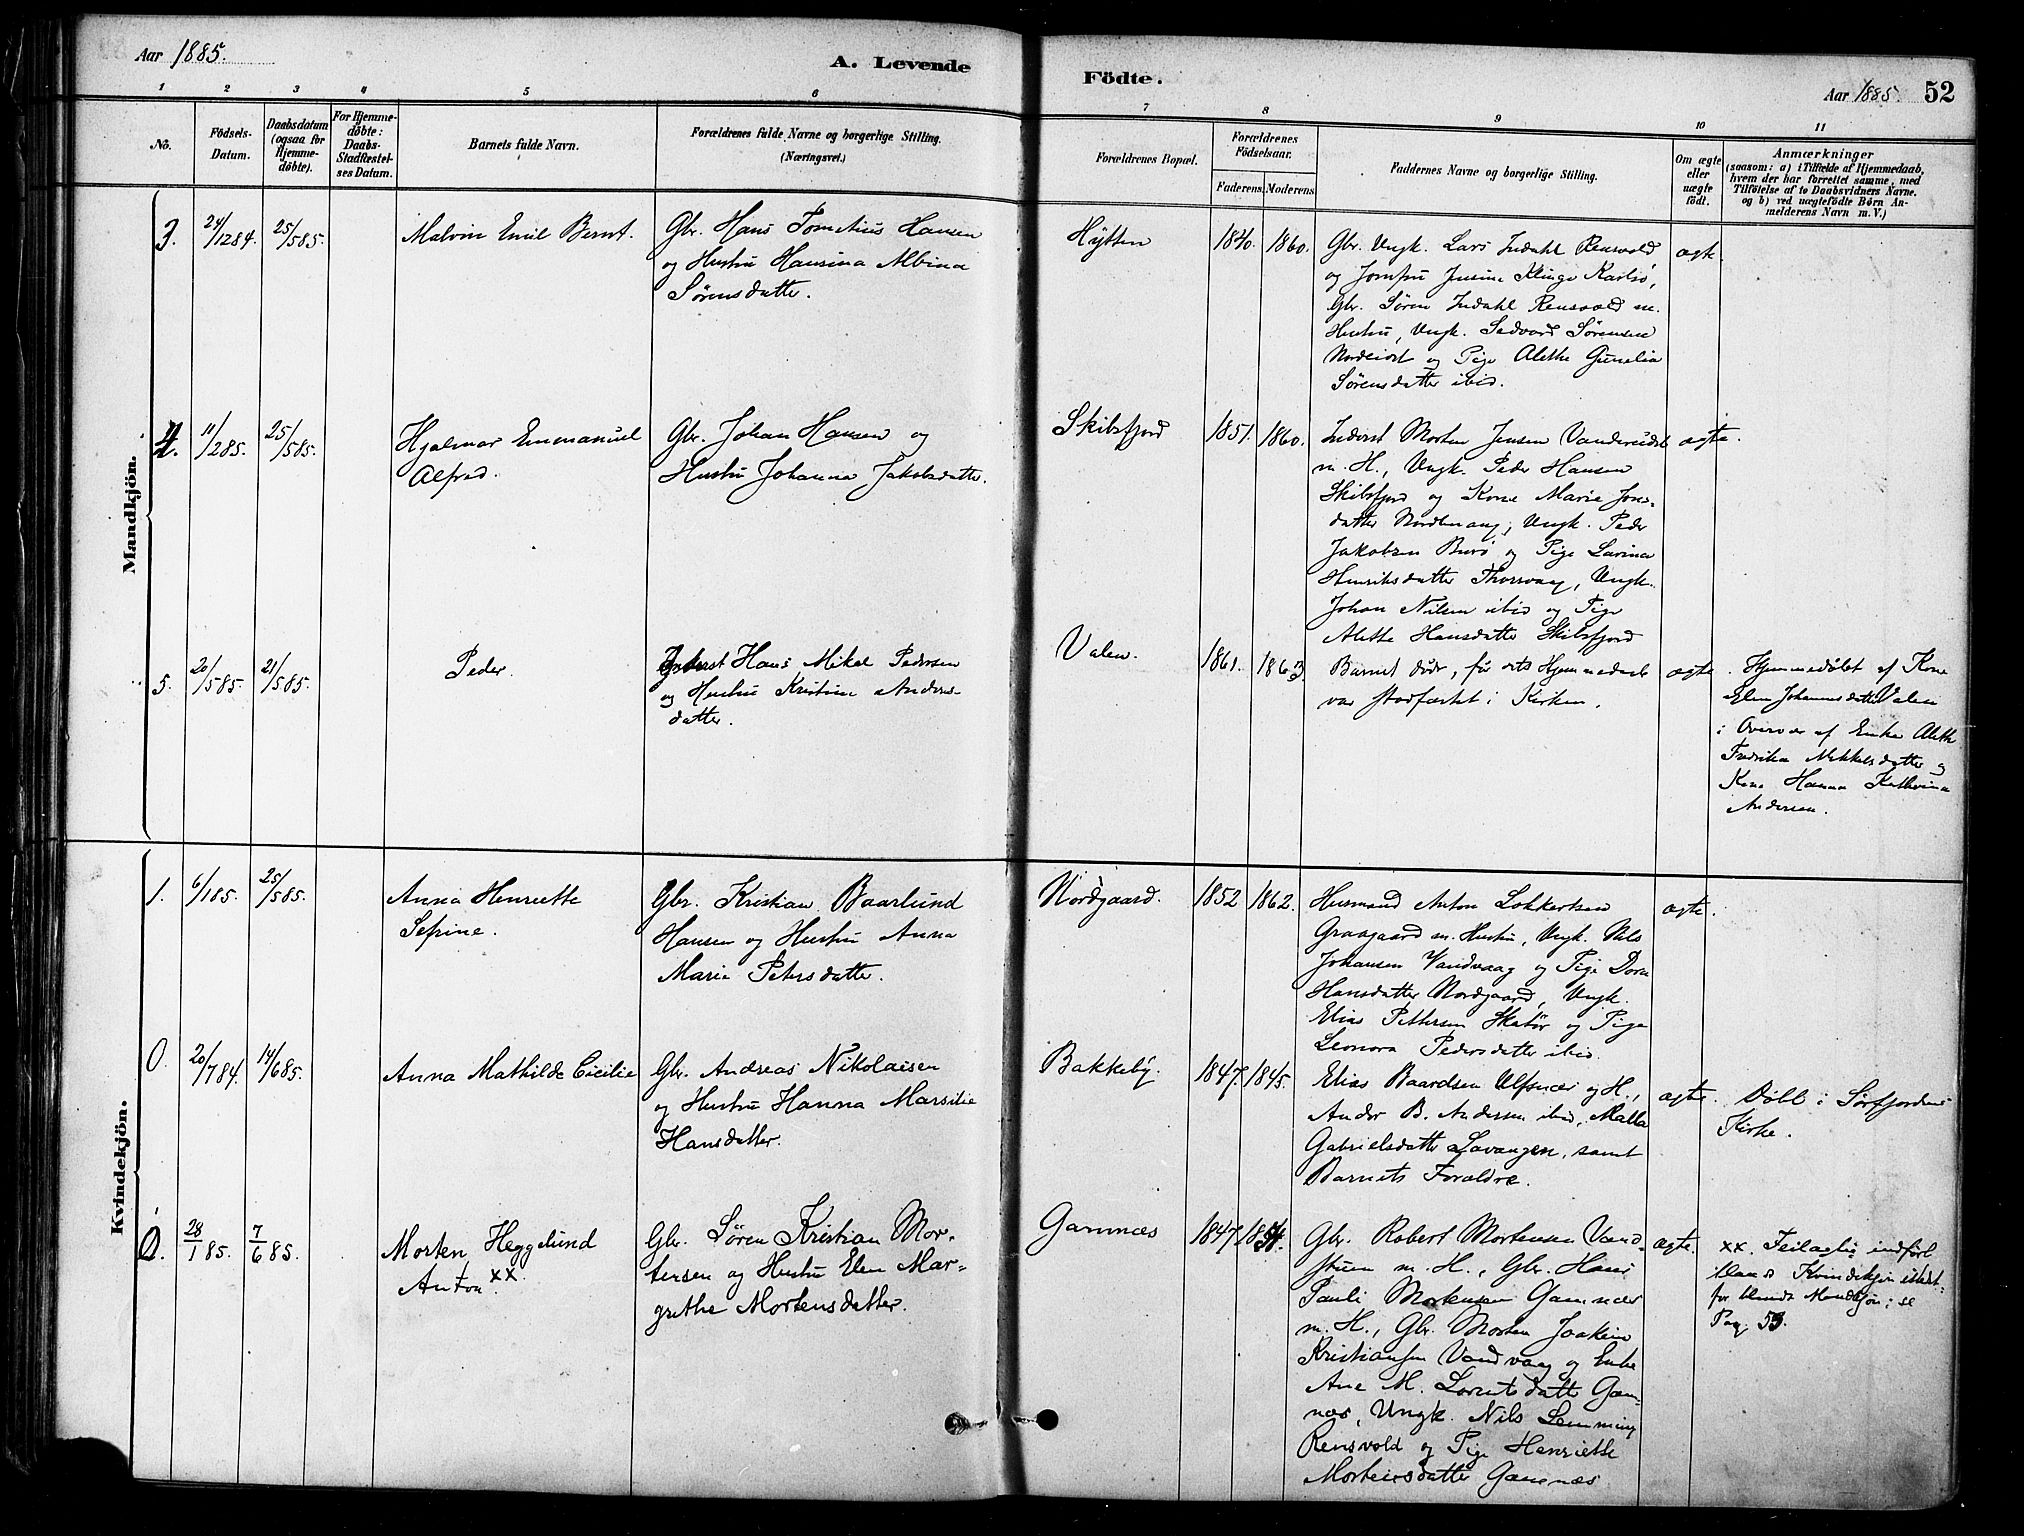 Aar 1885.
A. Levende
Födte.
Aar 1885. 52
1 2 3 4 5 6 7 8 9 10 11
No.
Födsels-
Datum.
Daabsdatum
(ogsaa for
Hjemme-
döbte).
For Hjemme-
döbte:
Daabs-
Stadfæstel-
ses Datum.
Barnets fulde Navn.
Forældrenes fulde Navne og borgerlige Stilling.
(Næringsvei.)
Forældrenes Bopæl.
Forældrenes
Födselsaar.
Faderens. Moderens.
Faddernes Navne og borgerlige Stilling.
Om ægte
eller
uægte
födt.
Anmærkninger
(saasom: a) i Tilfælde af Hjemmedaab,
hvem der har forrettet samme, med
Tilföielse af to Daabsvidners Navne.
og b) ved uægtefödte Börn An-
melderens Navn m. V.)
Mandkjön.
3. 24/12 84. 25/5 85.
Malvin Emil Bernt.
Gbr. Hans Hansen
og Hustru Hansina Albina
Sørensdatter.
Hytten
1840. 1860.
Gbr. Ungk. Lars Indahl Rensvold
og Jomfru Jusine Klinge Karlsø,
Gbr. Søren Indahl Rensvold m.
Hustru, Ungk. Sedvard Sørensen
og Pige Alethe Gunelia
Sørensdatter ibid.
ægte.
4. 11/2 85. 25/5 85.
Hjalmar Emmanuel
Alfred.
Gbr. Johan Hansen og
Hustru Johanna Jakobsdatter.
Skibsfjord
1851. 1860.
Inderst Morten Jensen
m. H., Ungk. Peder Hansen
Skibsfjord og Kone Marie Jons-
datter Ungk. Peder
Jakobsen og Pige Lavina
Henriksdatter Thorsvaag, Ungk.
Johan Nilsen ibid og Pige
Alette Hansdatter Skibsfjord
ægte.
5. 20/5 85. 21/5 85.
Peder.
Inderst Hans Mikal Pedersen
og Hustru Kristine Anders-
datter.
Valen.
1861. 1863.
Barnet døde, før dets Hjemmedaab
var stadfæstet i Kirken.
ægte.
Hjemmedøbt af Kone
Elen Johannesdatter Valen
i Overvær af Enke Aleth
Fredrika Mikkelsdatter og
Kone Hanna Kathrina
Andersen.
Kvindekjön.
1. 6/1 85. 25/5 85.
Anna Henriette
Sefrine.
Gbr. Kristian Baarlund
Hansen og Hustru Anna
Marie Petersdatter.
Nordgaard.
1852 1862.
Husmand Anton Lokkertsen
Graagaard m. Hustru, Ungk. Nils
Johansen Vandvaag og Pige Dora
Hansdatter Nordgaard, Ungk.
Elias Pettersen Skatør og Pige
Leonora Pedersdatter ibid.
ægte.
0 20/7 84. 14/6 85.
Anna Mathilde Cicilie
Gbr. Andreas Nikolaisen
og Hustru Hanna Marsilie
Hansdatter.
Bakkeby.
1847. 1845.
Elias Baardsen Ulfsnæs og H.,
Ander B. Andersen ibid, Malla
Gabrielsdatter Lavangen, samt
Barnets Forældre.
ægte.
Døbt i Sørfjordens
Kirke.
0. 28/1 85. 7/6 85.
Morten Heggelund
Anton xx.
Gbr. Søren Kristian Mor-
tensen og Hustru Elen Mar-
grethe Mortensdatter.
Gamnæs
1847. 1854.
Gbr. Robert Mortensen Vand-
stuen m. H., Gbr. Hans
Pauli Mortensen Gamnæs
m. H., Gbr. Morten Joakim
Kristiansen Vandvaag og Enke
Ane M. Lorntsdatter Gam-
næs, Ungk. Nils Lemming
Rensvold og Pige Henriette
Mortensdatter Gamnæs
ægte.
xx. Feilagtig indført
blandt Kvindekjøn istedet
for blandt Mandkjøn; se
Pag. 53.